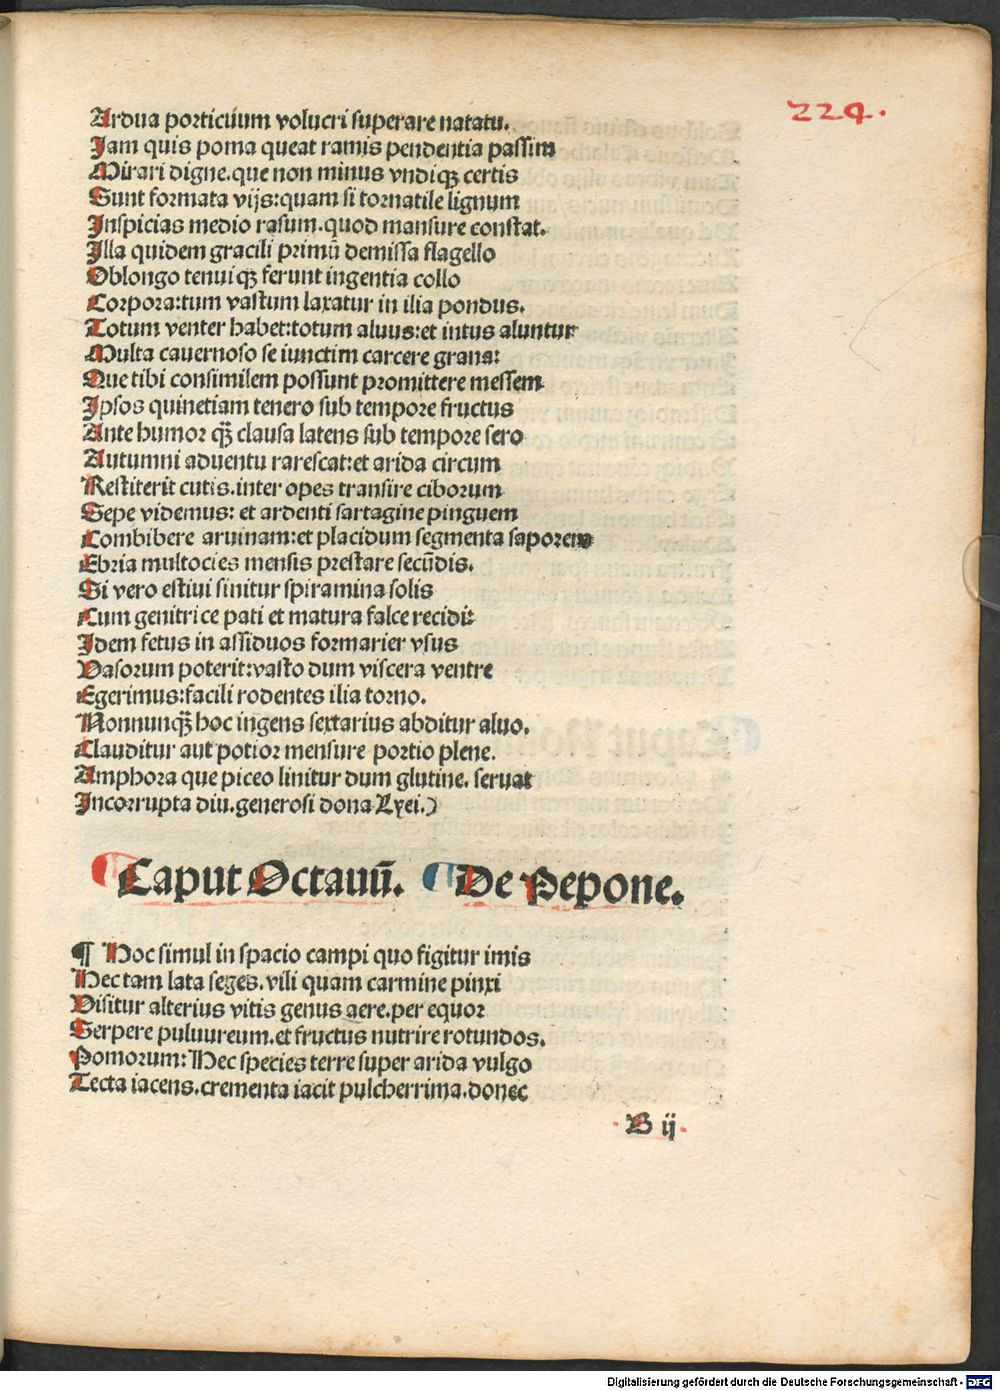 224.
Ardua porticuum volucri superare natatu.
Jam quis poma queat ramis pendentia passim
Mirari digne.que non minus vndiqꝫ certis
Sunt formata vijs:quam si tornatile lignum
Inspicias medio rasum.quod mansure constat.
Illa quidem gracili primū demissa flagello
Oblongo tenuiqꝫ ferunt ingentia collo
Corpora:tum vastum laxatur in ilia pondus.
Totum venter habet:totum aluus:et intus aluntur
Multa cauernoso se iunctim carcere grana:
Que tibi consimilem possunt promittere messem
Ipsos quinetiam tenero sub tempore fructus
Ante humor qꝫ̃ clausa latens sub tempore sero
Autumni aduentu rarescat:et arida circum
Restiterit cutis.inter opes transire ciborum
Sepe videmus: et ardenti sartagine pinguem
Combibere aruinam:et placidum segmenta saporem
Ebria multocies mensis prestare secūdis.
Si vero estiui sinitur spiramina solis
Cum genitrice pati et matura falce recidi:
Idem fetus in assiduos formarier vsus
Vasorum poterit:vasto dum viscera ventre
Egerimus:facili rodentes ilia torno.
Nonnunqꝫ̃ hoc ingens sextarius abditur aluo.
Clauditur aut potior mensure portio plene.
Amphora que piceo linitur dum glutine. seruat
Incorrupta diu.generosi dona Lyei.)
Caput Octauū. De Pepone.
¶ Hoc simul in spacio campi quo figitur imis
Hec tam lata seges.vili quam carmine pinxi
Visitur alterius vitis genus acre.per equor
Serpere puluureum.et fructus nutrire rotundos.
Pomorum:Hec species terre super arida vulgo
Tecta iacens.crementa iacit pulcherrima.donec
B ij
Digitalisierung gefördert durch die Deutsche Forschungsgemeinschaft - DFG